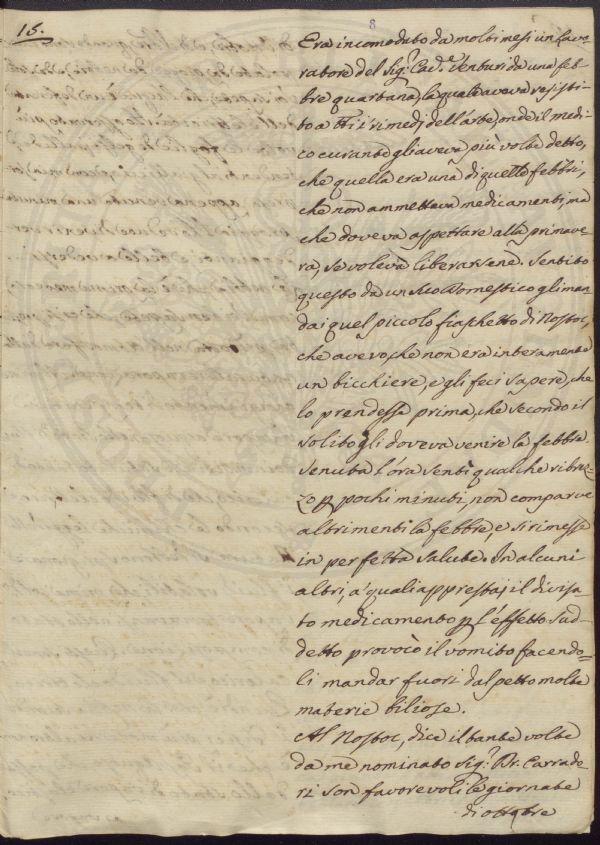 15.
8
Era incomodato da molti mesi un favo-
ratore del Sig.r Cav.e Venturi da una feb-
bre quartana, la quale aveva resisti-
to a tti i rimedj dell'arte, onde il medi-
co curante gli aveva più volte detto,
che quella era una di quelle febbri,
che non ammetteva medicamenti, ma
che doveva aspettare alla primave-
ra, se voleva liberarsene. Sentito
questo da un suo Domestico gli man-
dai quel piccolo fiaschetto di Nostoc,
che avevo, che non era interamente
un bicchiere, e gli feci sapere, che
lo prendesse prima, che secondo il
solito gli doveva venire la febbre.
Venuta l'ora sentì qualche ribrez-
zo p pochi minuti, non comparve
altrimenti la febbre, e si rimesse
in perfetta salute. In alcuni
altri, a' quali apprestaj il divisa-
to medicamento p l'effetto sud-
detto provocò il vomito facendo-
li mandar fuori dal petto molte
materie biliose.
Al Nostoc, dice il tante volte
da me nominato Sig.r Dr. Carrado-
ri son favorevoli le giornate
di ottobre